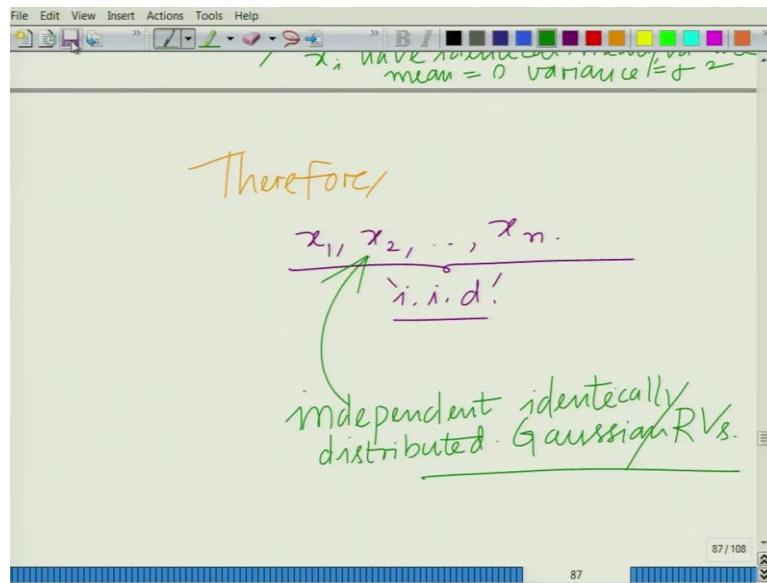 File Edit View Insert Actions Tools Help
mean = 0 variance = σ²
Therefore,
x₁, x₂, ..., xₙ.
'i.i.d'
independent identically
distributed. Gaussian RVs.
87/108
87